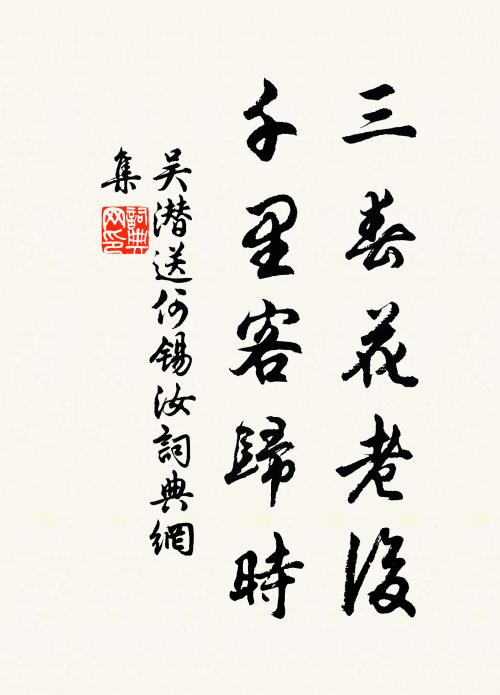 三春花老後
千里客歸時
吴潜送何锡汝詞典網
集
詞典网印